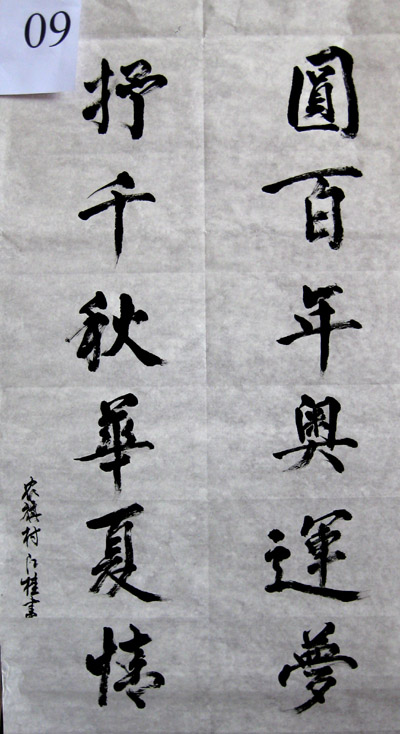 09
圓百年奧運夢
抒千秋華夏情
农旗村江桂書